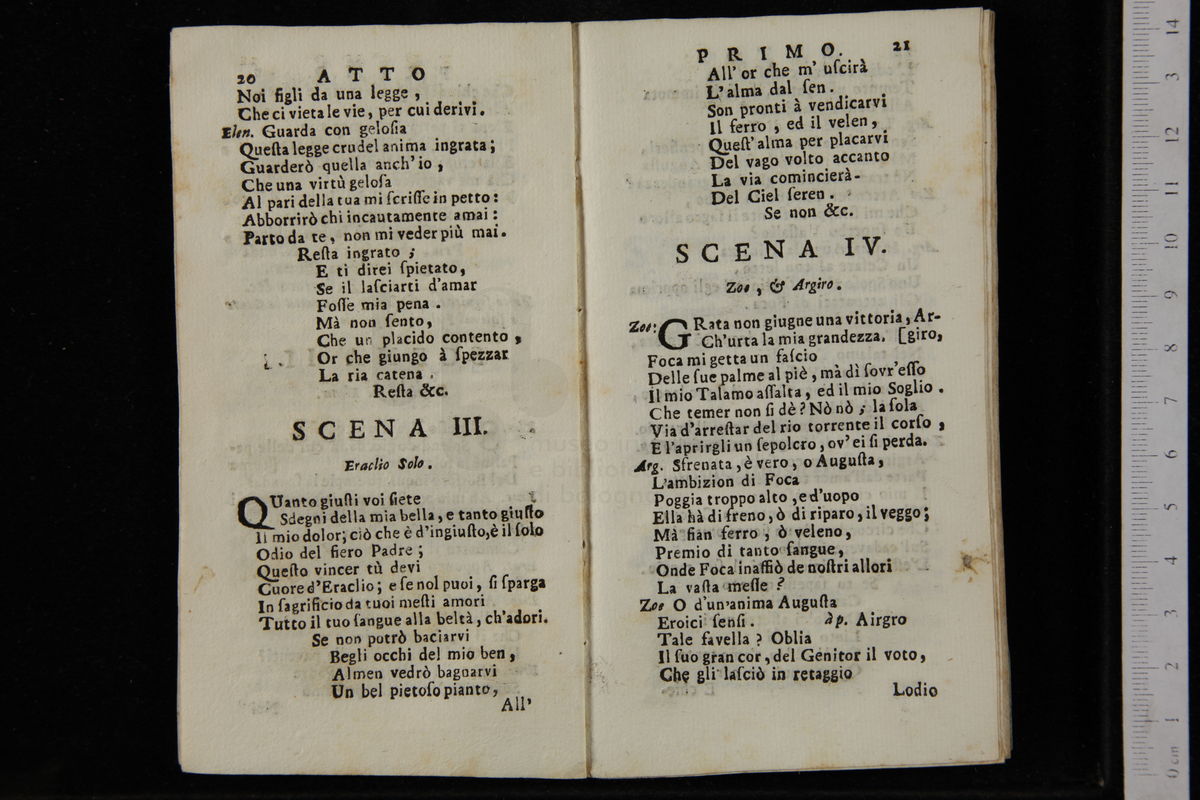 20 ATTO
Noi figli da una legge ,
Che ci vieta le vie, per cui derivi.
Elen. Guarda con geloſia
Queſta legge crudel anima ingrata;
Guarderò quella anch'io ,
Che una virtù geloſa
Al pari della tua mi ſcriſſe in petto:
Abborrirò chi incautamente amai :
Parto da te, non mi veder più mai.
Reſta ingrato ;
E ti direi ſpietato,
Se il laſciarti d'amar
Foſſe mia pena .
Mà non ſento,
Che un placido contento ,
Or che giungo à ſpezzar
La ria catena .
Reſta &c.
SCENA III.
Eraclio Solo.
QUanto giuſti voi ſiete
Sdegni della mia bella, e tanto giuſto
Il mio dolor; ciò che è d'ingiuſto,è il ſolo
Odio del fiero Padre ;
Queſto vincer tù devi
Cuore d'Eraclio; e ſe nol puoi, ſi ſparga
In ſagrificio da tuoi meſti amori
Tutto il tuo ſangue alla beltà, ch'adori.
Se non potrò baciarvi
Begli occhi del mio ben,
Almen vedrò bagnarvi
Un bel pietoſo pianto,
All'
PRIMO. 21
All' or che m' uſcirà
L'alma dal ſen.
Son pronti à vendicarvi
Il ferro , ed il velen,
Queſt'alma per placarvi
Del vago volto accanto
La via comincierà-
Del Ciel ſeren.
Se non &c.
SCENA IV.
Zoe , & Argiro.
Zoe: GRata non giugne una vittoria, Ar-
Ch'urta la mia grandezza. [giro,
Foca mi getta un faſcio
Delle ſue palme al piè, mà dì ſovr'eſſo
Il mio Talamo aſſalta, ed il mio Soglio.
Che temer non ſi dè? Nò nò ; la ſola
Via d'arreſtar del rio torrente il corſo ,
E l'aprirgli un ſepolcro, ov' ei ſi perda.
Arg. Sfrenata, è vero, o Auguſta,
L'ambizion di Foca
Poggia troppo alto, e d'uopo
Ella hà di freno, ò di riparo, il veggo;
Mà fian ferro , ò veleno,
Premio di tanto ſangue,
Onde Foca inaffiò de noſtri allori
La vaſta meſſe ?
Zoe O d'un'anima Auguſta
Eroici ſenſi. àp. Airgro
Tale favella ? Oblia
Il ſuo gran cor, del Genitor il voto,
Che gli laſciò in retaggio
Lodio